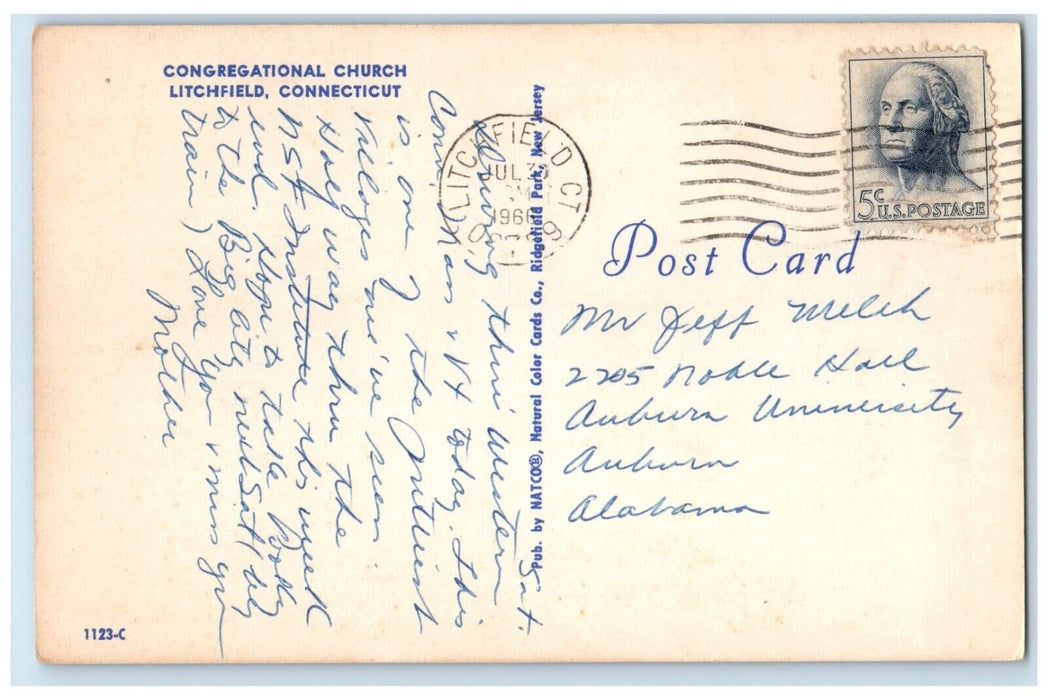 CONGREGATIONAL CHURCH
LITCHFIELD, CONNECTICUT
Sat.
Driving thru' Western
Conn, Mass & Vt today. This
is one of the prettiest
Villages we've seen.
Half way thru the
NSF Institute this week
end. Hope to take Pooky
to the Big City next Sat (by
train) Love you & miss you
Mother
1123-C
Pub. by NATCO®, Natural Color Cards Co., Ridgefield Park, New Jersey
LITCHFIELD CT
JUL 30
1966
5c
U.S.POSTAGE
Post Card
Mr Jeff Welch
2205 Noble Hall
Auburn University
Auburn
Alabama